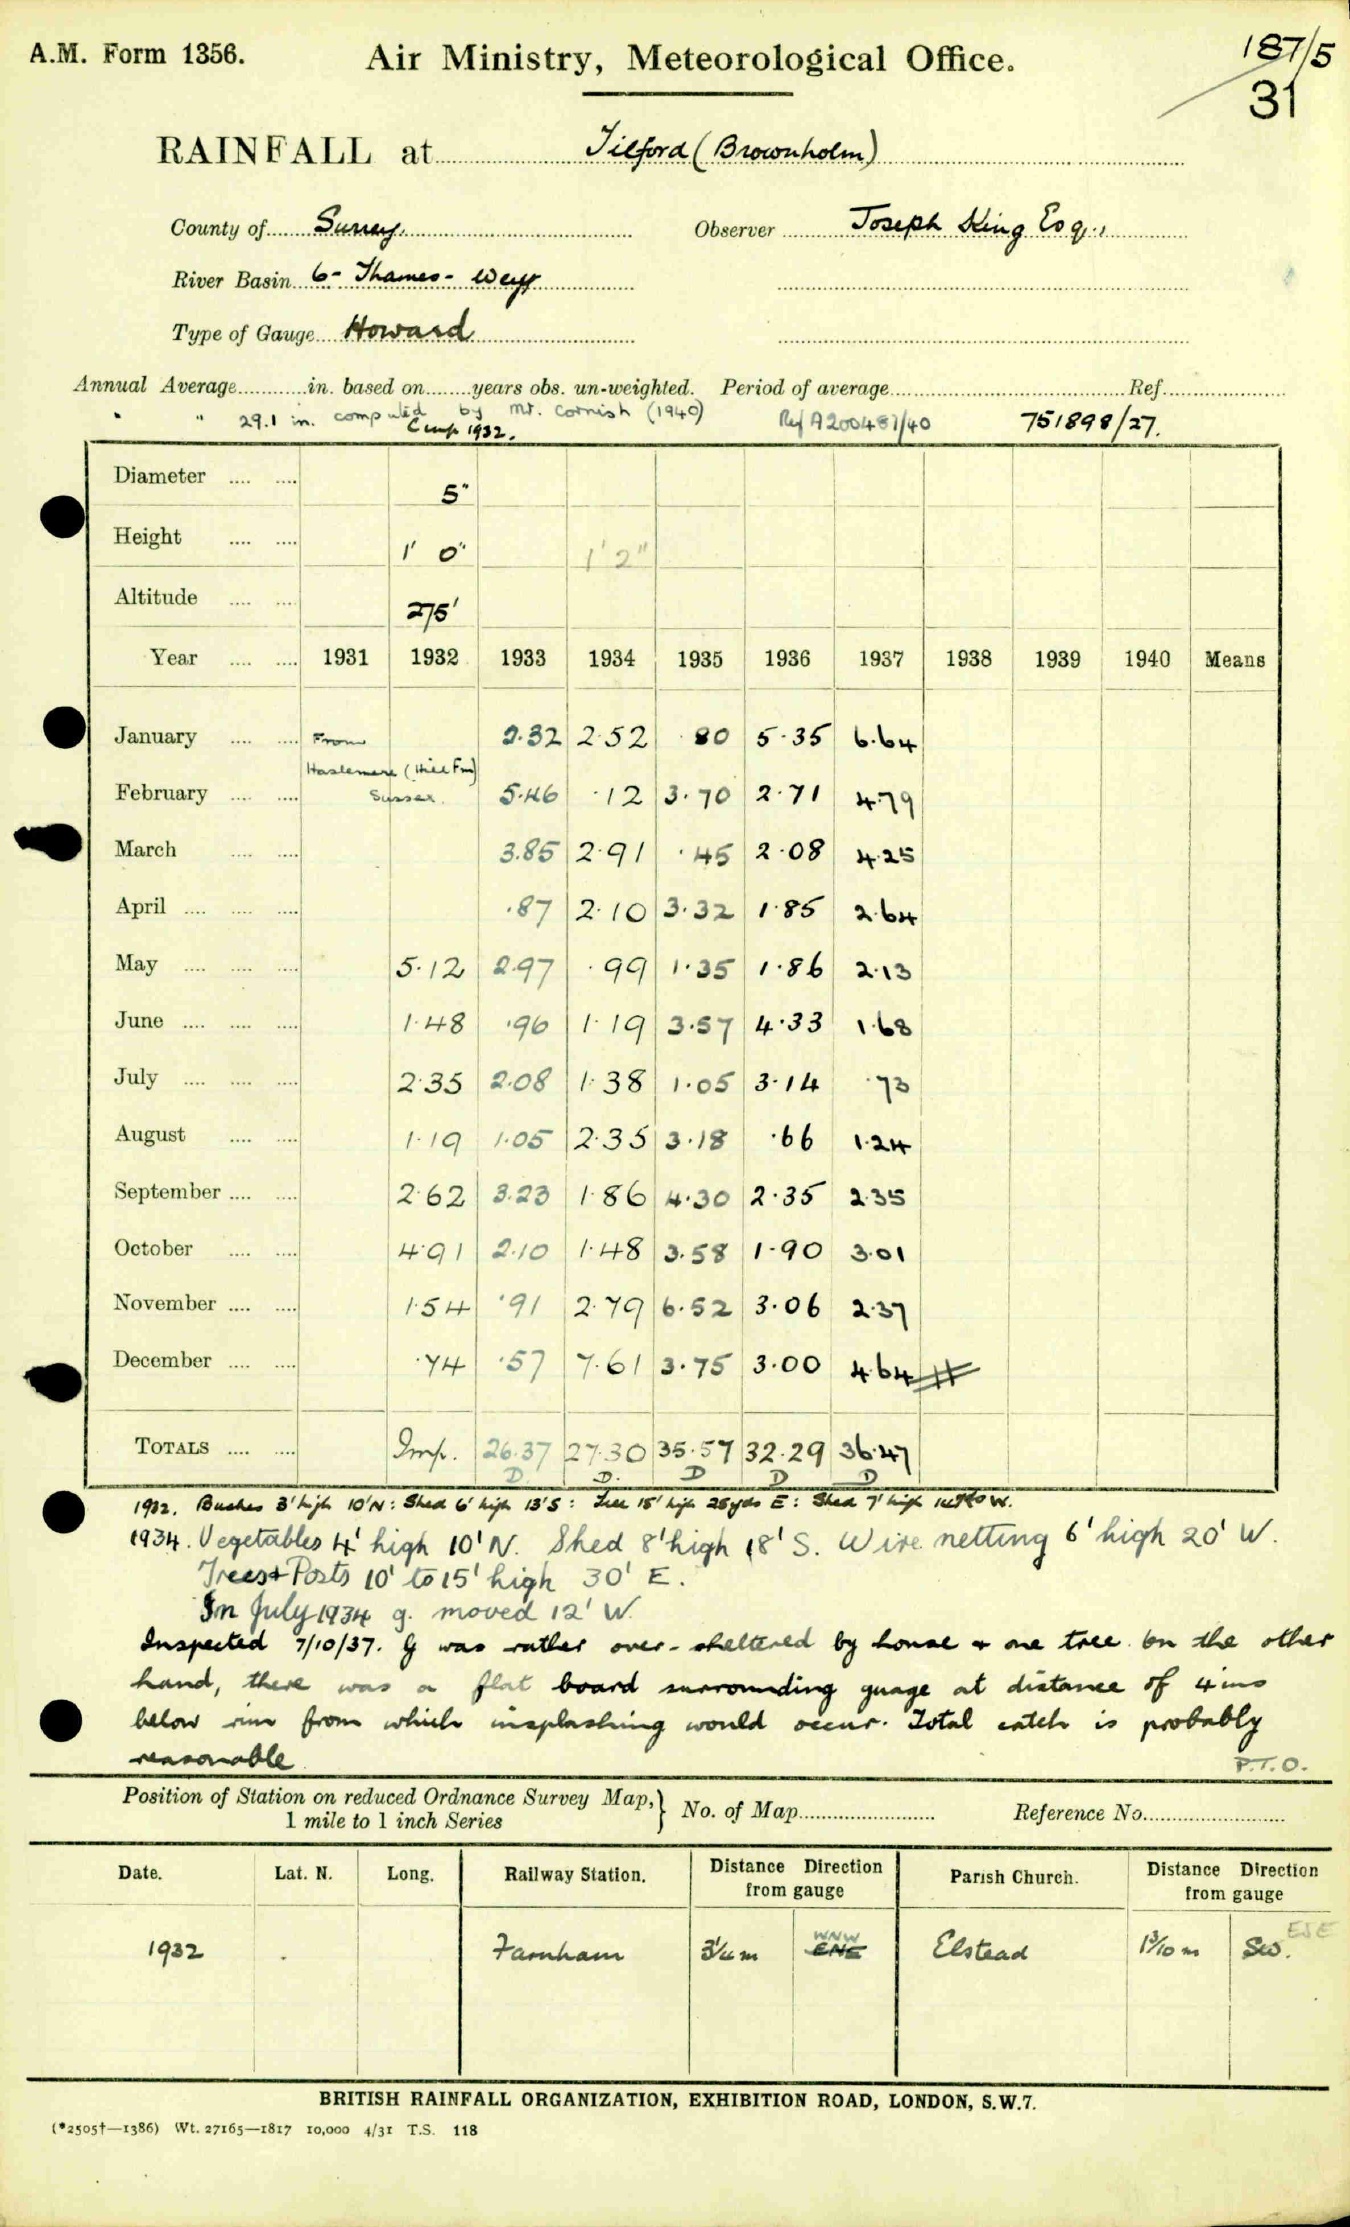 A.M. Form 1356.
Air Ministry, Meteorological Office.
187/5
31
RAINFALL at Tilford (Brownholm)
County of Surrey. Observer Joseph King Esq.,
River Basin 6- Thames - Wey
Type of Gauge Howard
Annual Average in. based on years obs. un-weighted. Period of average Ref.
" " 29.1 in. computed by Mr. Cornish (1940) Ref A200487/40 751898/27.
1932.
Diameter 5"
Height 1' 0" 1' 2"
Altitude 275'
Year 1931 1932 1933 1934 1935 1936 1937 1938 1939 1940 Means
January From 2.32 2.52 .80 5.35 6.64
Haslemere (Hill Fm)
February Sussex. 5.46 .12 3.70 2.71 4.79
March 3.85 2.91 .45 2.08 4.25
April .87 2.10 3.32 1.85 2.64
May 5.12 2.97 .99 1.35 1.86 2.13
June 1.48 .96 1.19 3.57 4.33 1.68
July 2.35 2.08 1.38 1.05 3.14 .73
August 1.19 1.05 2.35 3.18 .66 1.24
September 2.62 3.23 1.86 4.30 2.35 2.35
October 4.91 2.10 1.48 3.58 1.90 3.01
November 1.54 .91 2.79 6.52 3.06 2.37
December .74 .57 7.61 3.75 3.00 4.64
TOTALS Imp. 26.37 27.30 35.57 32.29 36.47
D. D. D D D
1932. Bushes 3' high 10' N: Shed 6' high 13' S: Tree 15' high 25yds E: Shed 7' high W.
1934. Vegetables 4' high 10' N. Shed 8' high 18' S. Wire netting 6' high 20' W.
Trees + Posts 10' to 15' high 30' E.
In July 1934 g. moved 12' W.
Inspected 7/10/37. G was rather over-sheltered by house + one tree. On the other
hand, there was a flat board surrounding guage at distance of 4 ins
below rim from which insplashing would occur. Total catch is probably
reasonable
P.T.O.
Position of Station on reduced Ordnance Survey Map,} No. of Map Reference No.
1 mile to 1 inch Series
Date. Lat. N. Long. Railway Station. Distance Direction from gauge Parish Church. Distance Direction from gauge
1932 Farnham 3¼ m ENE WNW Elstead 1 3/10 m SW. ESE
BRITISH RAINFALL ORGANIZATION, EXHIBITION ROAD, LONDON, S.W.7.
(*2505†—1386) Wt. 27165—1817 10,000 4/31 T.S. 118